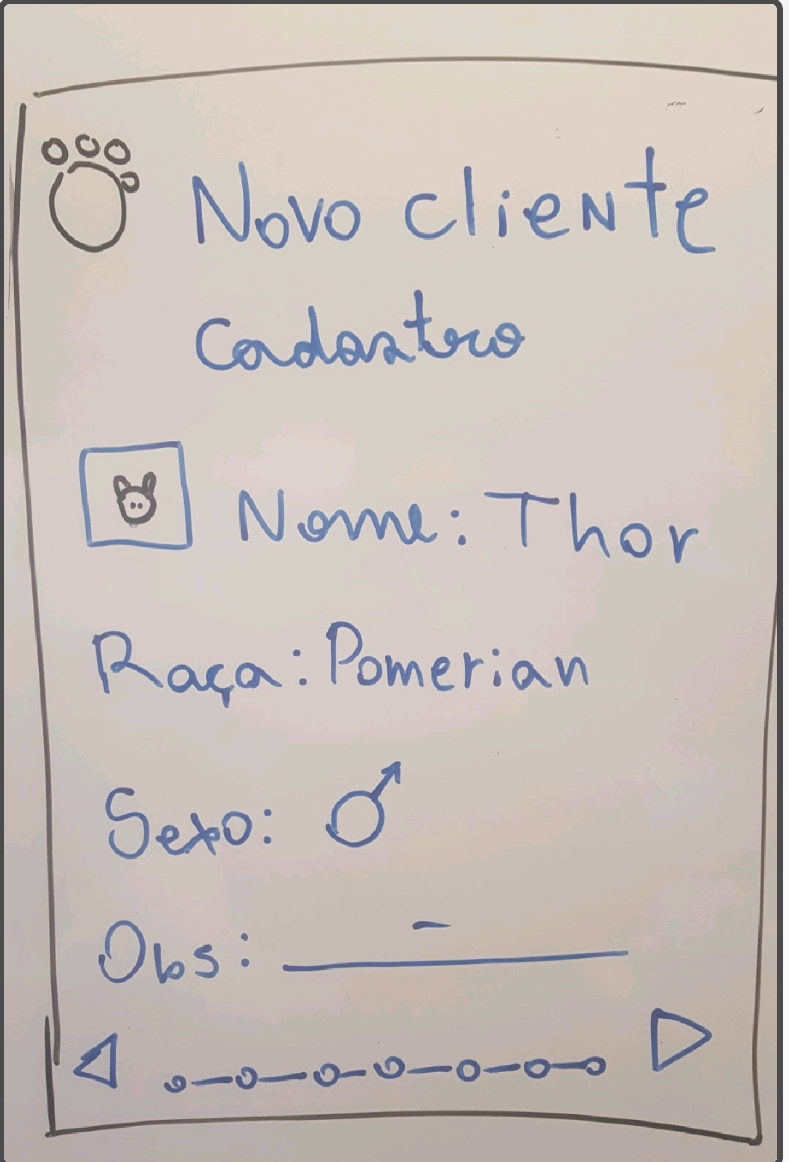 Novo cliente
Cadastro
Nome: Thor
Raça: Pomerian
Sexo: ♂
Obs: -